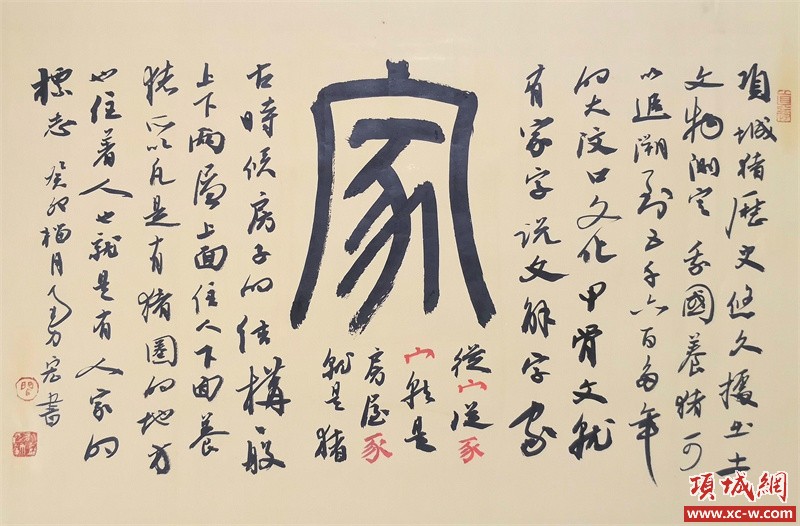 項城猪歷史悠久據出土
文物测定我國養猪可
以追溯到五千六百多年
的大汶口文化甲骨文就
有家字说文解字家
家
從宀從豕
宀就是
房屋豕
就是猪
古時候房子的结構一般
上下两層上面住人下面養
猪所以凡是有猪圈的地方
也住着人也就是有人家的
標志 癸卯榴月 勇宏書
項城網
www.xc-w.com